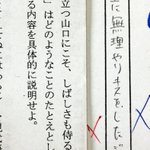 に無理やりキスをした
立つ山口にこそ、しばしさも侍る
」はどのようなことのたとえとし
る内容を具体的に説明せよ。